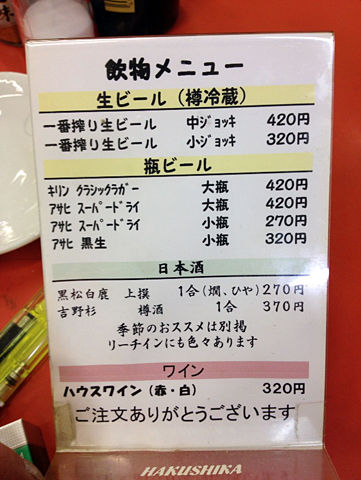 飲物メニュー
生ビール（樽冷蔵）
一番搾り生ビール 中ジョッキ 420円
一番搾り生ビール 小ジョッキ 320円
瓶ビール
キリン クラシックラガー 大瓶 420円
アサヒ スーパードライ 大瓶 420円
アサヒ スーパードライ 小瓶 270円
アサヒ 黒生 小瓶 320円
日本酒
黒松白鹿 上撰 1合(燗、ひや)270円
吉野杉 樽酒 1合 370円
季節のおススメは別掲
リーチインにも色々あります
ワイン
ハウスワイン（赤・白） 320円
ご注文ありがとうございます
HAKUSHIKA